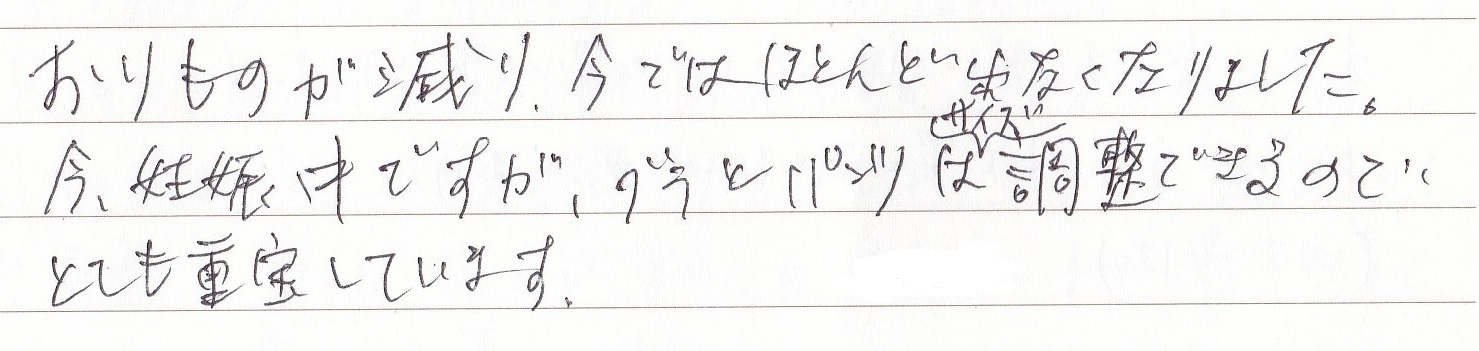 おりものが減り、今ではほとんど出なくなりました。
今、妊娠中ですが、はサイズ調整できるので、
とても重宝しています。